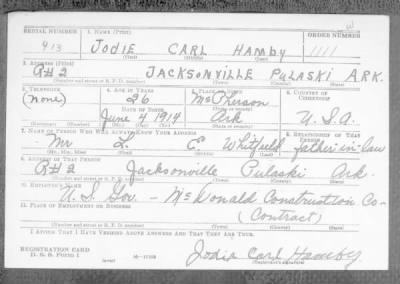 SERIAL NUMBER 1. NAME (Print) ORDER NUMBER
913 JODIE CARL HAMBY 1111
(First) (Middle) (Last)
2. ADDRESS (Print)
R#2 JACKSONVILLE PULASKI ARK.
(Number and street or R. F. D. number) (Town) (County) (State)
3. TELEPHONE 4. AGE IN YEARS 5. PLACE OF BIRTH 6. COUNTRY OF CITIZENSHIP
(None) 26 McPherson
DATE OF BIRTH
June 4 1914 Ark U.S.A.
(Exchange) (Number) (Mo.) (Day) (Yr.) (State or country)
7. NAME OF PERSON WHO WILL ALWAYS KNOW YOUR ADDRESS 8. RELATIONSHIP OF THAT PERSON
Mr L. E. Whitfield father-in-law
(Mr., Mrs., Miss) (First) (Middle) (Last)
9. ADDRESS OF THAT PERSON
R#2 Jacksonville Pulaski Ark.
(Number and street or R. F. D. number) (Town) (County) (State)
10. EMPLOYER'S NAME
U.S. Gov. - McDonald Construction Co-
11. PLACE OF EMPLOYMENT OR BUSINESS
(Contract)
(Number and street or R. F. D. number) (Town) (County) (State)
I AFFIRM THAT I HAVE VERIFIED ABOVE ANSWERS AND THAT THEY ARE TRUE.
REGISTRATION CARD
D. S. S. Form 1 (over) Jodie Carl Hamby
(Registrant's signature)